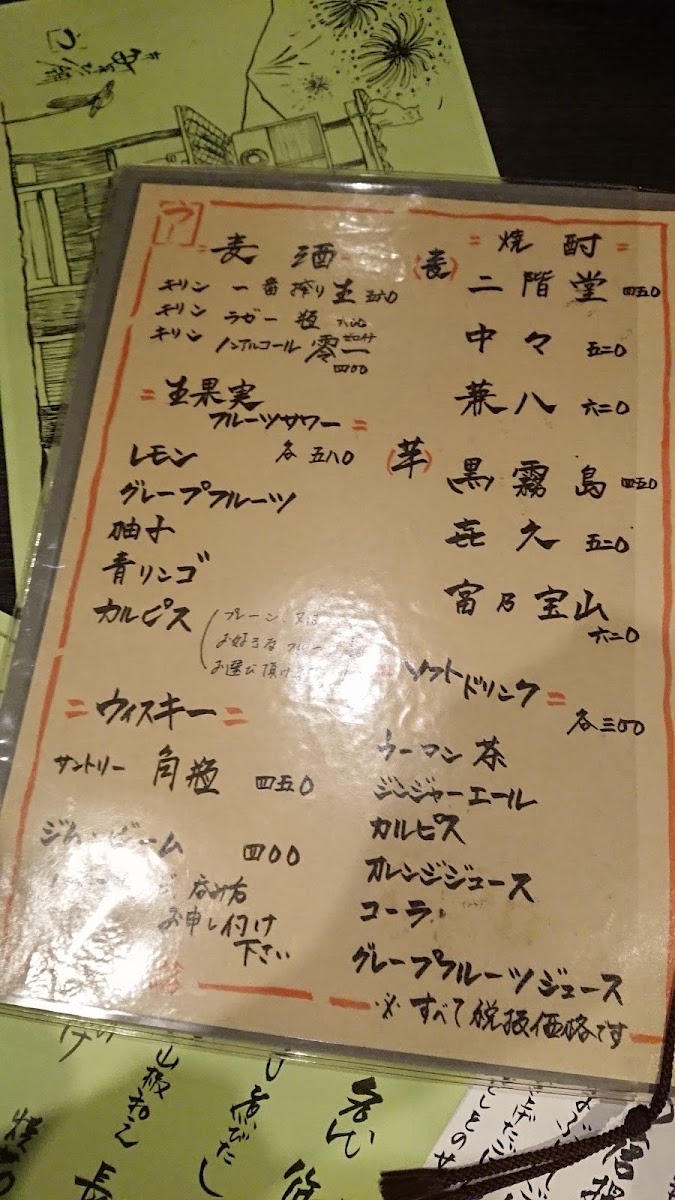 麦酒
キリン 一番搾り生 五八〇
キリン ラガー瓶 六〇〇
キリン ノンアルコール 零一 ゼロイチ
四〇〇
生果実
フルーツサワー
各 五八〇
レモン
グレープフルーツ
柚子
青リンゴ
カルピス
プレーン又は
お好きなフルーツ
お選び頂け
ウィスキー
サントリー 角瓶 四五〇
ジムビーム 四〇〇
呑み方
お申し付け
下さい
焼酎
(麦) 二階堂 四五〇
中々 五二〇
兼八 六二〇
(芋) 黒霧島 四五〇
㐂久 五二〇
富乃宝山
六二〇
ソフトドリンク
各三〇〇
ウーロン茶
ジンジャーエール
カルピス
オレンジジュース
コーラ
グレープフルーツジュース
※すべて税抜価格です